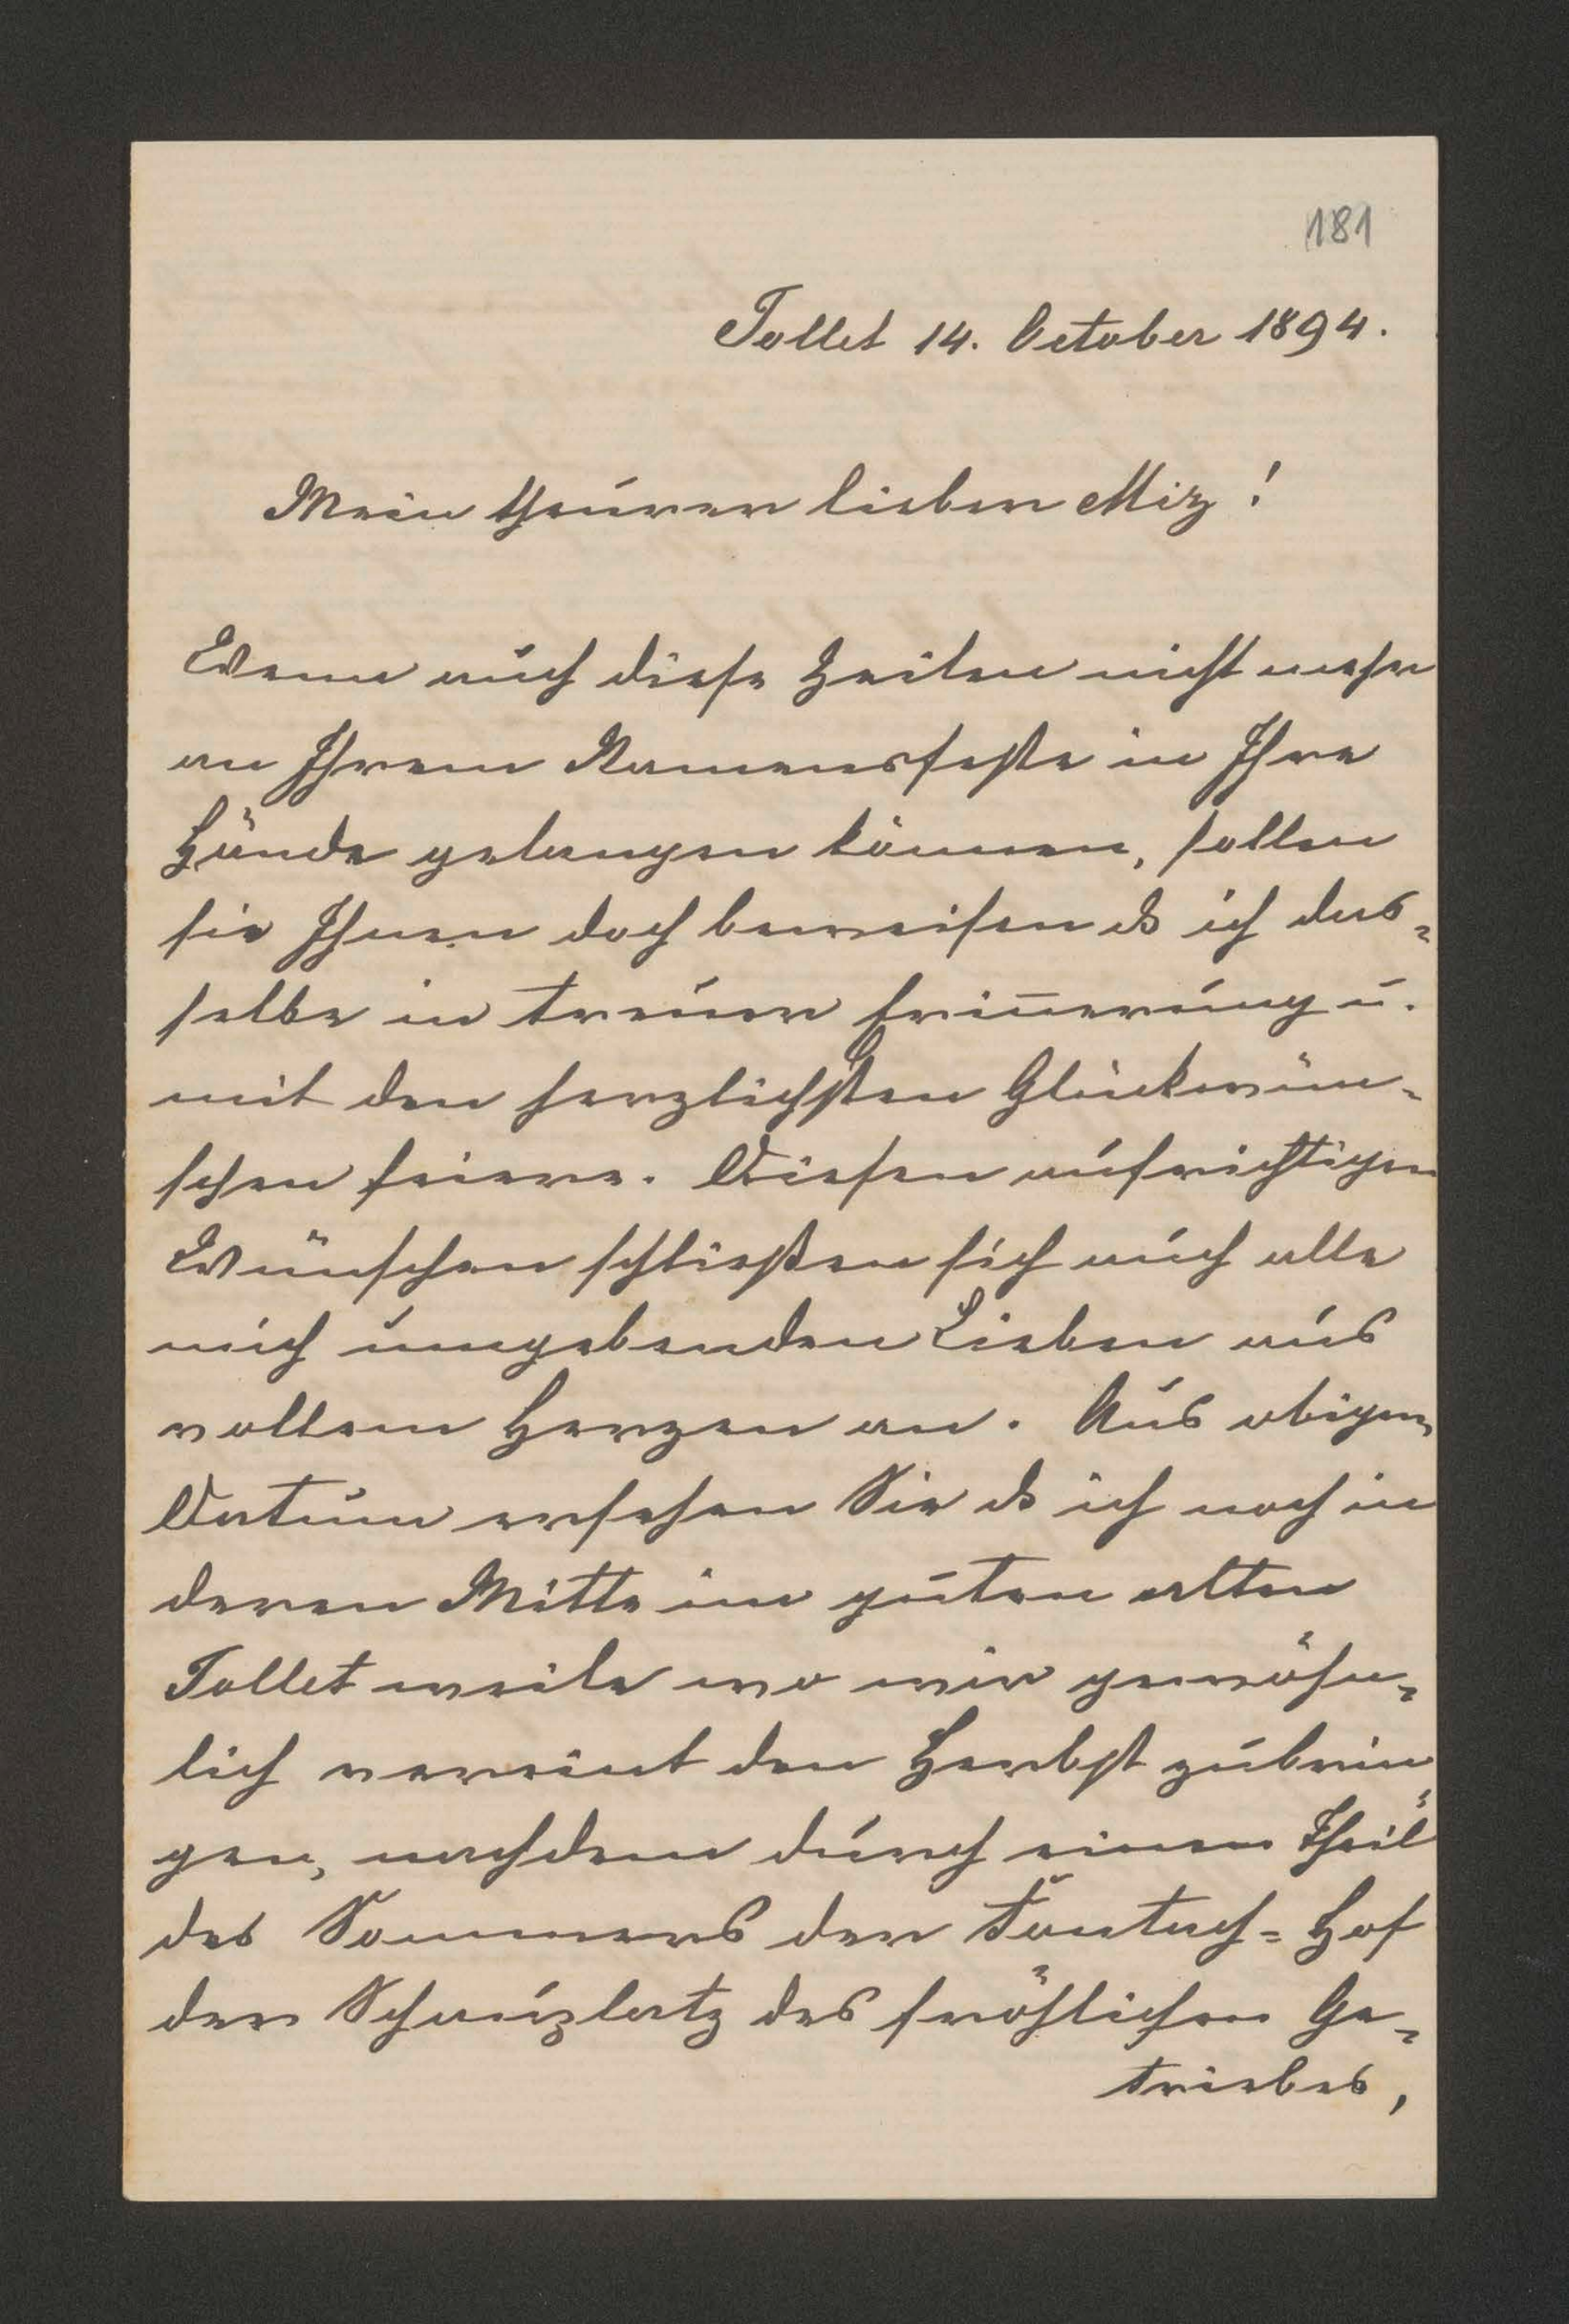 181
Tollet 14. October 1894.
Mein theurer lieber Miz!
Wenn auch diese Zeilen nicht mehr
an Ihrem Namensfeste in Ihre
Hände gelangen können, sollen
sie Ihnen doch beweisen ds ich das=
selbe in treuer Erin̄erung u.
mit den herzlichsten Glückwün=
schen feiere. Diesen aufrichtigen
Wünschen schließen sich auch alle
mich umgebenden Lieben aus
vollem Herzen an. Aus obigem
Datum ersehen Sie ds ich noch in
deren Mitte im guten alten
Tollet weile wo wir gewöhn=
lich vereint den Herbst zubrin=
gen, nachdem durch einen Theil
des Sommers der =Hof
der Schauplatz des fröhlichen Ge=
triebes,